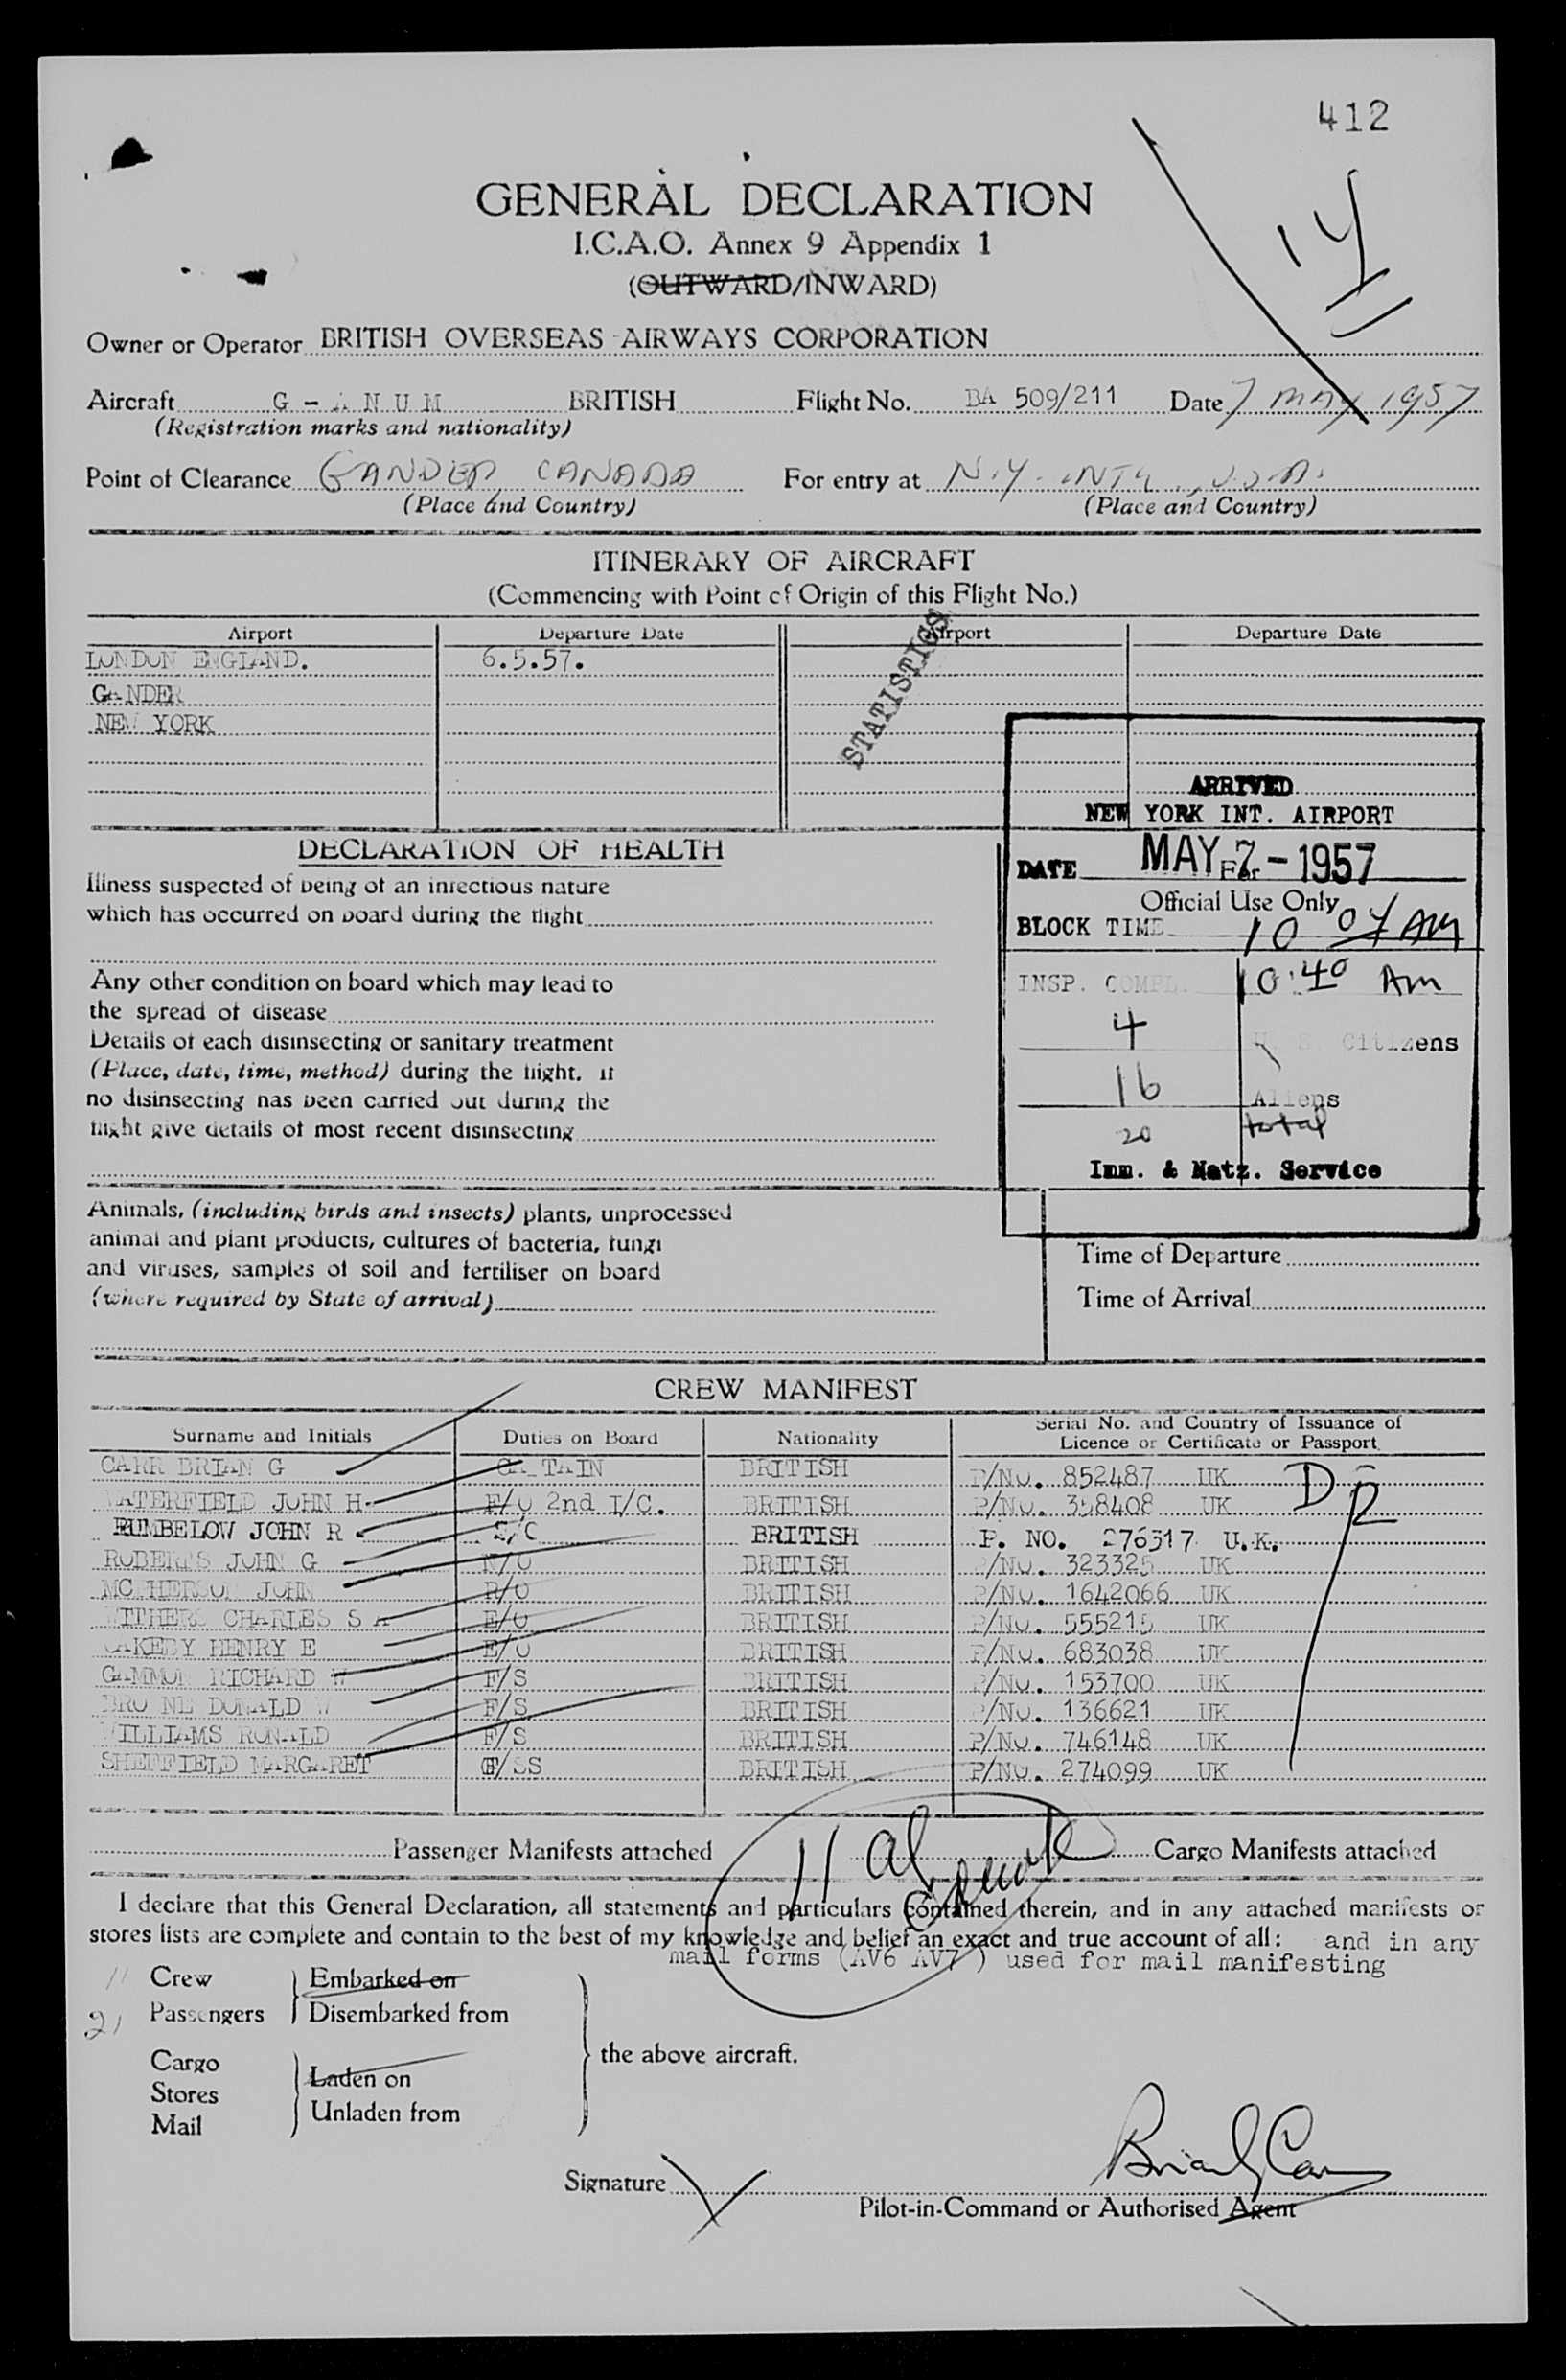 412
GENERAL DECLARATION
I.C.A.O. Annex 9 Appendix 1
(OUTWARD/INWARD)
14
Owner or Operator BRITISH OVERSEAS AIRWAYS CORPORATION
Aircraft G - A N U M BRITISH Flight No. BA 509/211 Date 7 MAY 1957
(Registration marks and nationality)
Point of Clearance GANDER CANADA For entry at N.Y. INTL. U.S.A.
(Place and Country) (Place and Country)
ITINERARY OF AIRCRAFT
(Commencing with Point of Origin of this Flight No.)
Airport Departure Date Airport Departure Date
LONDON ENGLAND. 6.5.57.
GANDER
NEW YORK
STATISTICS
ARRIVED
NEW YORK INT. AIRPORT
DATE MAY 7 - 1957
For
Official Use Only
BLOCK TIME 10 07 AM
INSP. COMPL. 10:40 AM
4 U. S. Citizens
16 Aliens
20 total
Imm. & Natz. Service
DECLARATION OF HEALTH
Illness suspected of being of an infectious nature
which has occurred on board during the flight
Any other condition on board which may lead to
the spread of disease
Details of each disinsecting or sanitary treatment
(Place, date, time, method) during the flight. If
no disinsecting has been carried out during the
flight give details of most recent disinsecting
Animals, (including birds and insects) plants, unprocessed
animal and plant products, cultures of bacteria, fungi
and viruses, samples of soil and fertiliser on board
(where required by State of arrival)
Time of Departure
Time of Arrival
CREW MANIFEST
Surname and Initials Duties on Board Nationality Serial No. and Country of Issuance of
Licence or Certificate or Passport
CARR BRIAN G CAPTAIN BRITISH P/No. 852487 UK
WATERFIELD JOHN H F/O 2nd I/C. BRITISH P/No. 358408 UK
RUMBELOW JOHN R BRITISH P. NO. 276317 U.K.
ROBERTS JOHN G N/O BRITISH P/No. 323325 UK
MC PHERSON JOHN R/O BRITISH P/No. 1642066 UK
WITHERS CHARLES S A E/O BRITISH P/No. 555215 UK
OAKEBY HENRY E E/O BRITISH P/No. 683038 UK
GAMMON RICHARD W F/S BRITISH P/No. 153700 UK
DONALD W F/S BRITISH P/No. 136621 UK
WILLIAMS RONALD F/S BRITISH P/No. 746148 UK
SHEFFIELD MARGARET F/SS BRITISH P/No. 274099 UK
Passenger Manifests attached Cargo Manifests attached
11
I declare that this General Declaration, all statements and particulars contained therein, and in any attached manifests or
stores lists are complete and contain to the best of my knowledge and belief an exact and true account of all: and in any
mail forms (AV6 AV7) used for mail manifesting
11 Crew Embarked on
21 Passengers Disembarked from
the above aircraft.
Cargo Laden on
Stores
Mail Unladen from
Signature Brian G Carr
Pilot-in-Command or Authorised Agent